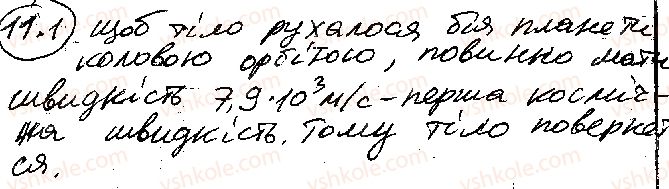 11.1 Щоб тіло рухалося біля планети
коловою орбітою, повинно мати
швидкість 7,9·10³ м/с – перша косміч-
на швидкість. Тому тіло повернет
ся.